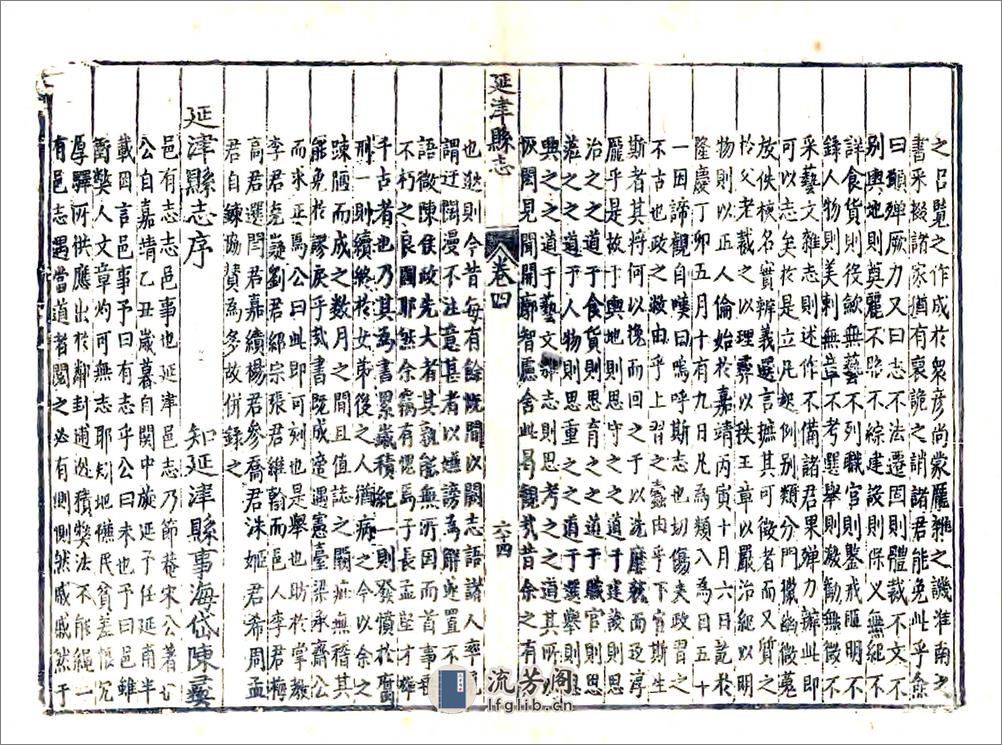 之呂覽之作成於衆彥尚蒙龐雜之譏淮南之
書采掇諸家猶有裒詭之誚諸君能免此乎僉
曰願殫厥力又曰志不法遷固則體裁不文不
別輿地則奠麗不略不綜建設則保乂無紀不
詳食貨則役歛無藝不列職官則鑒戒匪明不
錄人物則美刺無章不考選舉則激勸無獲不
采藝文雜志則述作不備諸君果殫力辦此即
可以志矣於是立凡起例別類分門摉幽徵蒐
放佚核名實辨義選言摭其可徵者而又質之
於父老裁之以理彞以秩王章以嚴治經以明
物則以正人倫始於嘉靖丙寅十月六日訖於
隆慶丁卯五月十有九日凡為類八為日五十
一因諦觀自嘆曰嗚呼斯志也切傷夫政習之
不古也政之敝由乎上習之蠹由乎下官斯生
斯者其將何以挽而回之于以洗磨就而返淳
龐乎是故于輿地則思守之之道于建設則思
治之之道于食貨則思育之之道于職官則思
蒞之之道于人物則思重之之道于選舉則思
興之之道于藝文雜志則思考之之道其所
扳聞見聞開廓智慮舍此曷觀哉昔余之有所
延津縣志
卷四
六十四
也敝則今昔每有餘慨間以闕志語諸人率
謂迂闊漫不注意甚者以嫌謗為解迹置不
語徵陳侯政先大者其孰能無所因而首事
不朽之良圖耶然余竊有愧焉子長孟堅才雄
千古者也乃其為書累歲積紀一則發憤於腐
刑一則續終於女弟後之人猶病之今余以
踈陋而成之數月之間且值誌之闕疵無稽其
能免於謬戾乎哉書既成啻遇憲臺梁承齋公
而求正焉公曰此即可刻也是舉也助於掌教
李君克嶷劉君邦宗張君維翰而邑人李君梅
高君選閆君嘉續楊君參喬君洙姬君希周孟
君自鍊協賛為多故併錄之
延津縣志序
知延津縣事海岱陳彞
邑有志志邑事也延津邑志乃節菴宋公著也
公自嘉靖乙丑歲暮自関中旋延予任延甫半
載因言邑事予曰有志乎公曰未也予曰恨邑雖
蕞獘人文章灼可無志耶矧地僬民貧差悵冗
厚驛所供應出於鄰封逋逃積獘法不能繩一
有邑志遇當道者閱之必有惻然戚戚然于
流芳阁
lfglib.cn